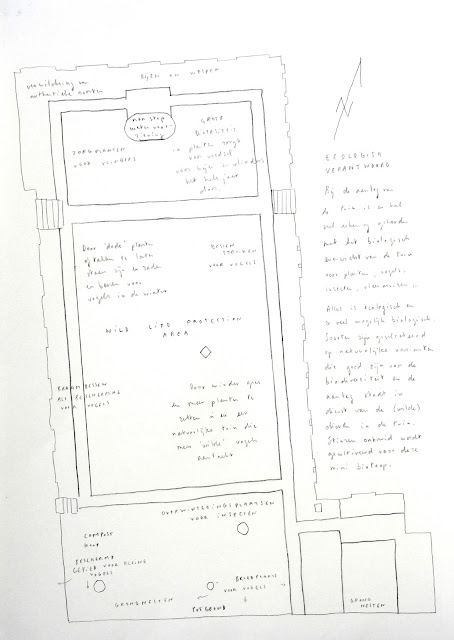 verwildering van
authentieke soorten
BIJEN EN WESPEN
non stop
water voor-
ziening
ZORGPLANTEN
VOOR VLINDERS
GROTE
DIVERSITEIT
in planten zorgt
van voedsel
voor bijen en vlinders
het hele jaar
door.
Door 'dode' planten
of takken te laten
staan zijn er zaden
en bessen voor
vogels in de winter
BESSEN
STRUIKEN
VOOR VOGELS
WILD LIFE PROTECTION
AREA
BRAAMBESSEN
ALS BESCHERMING
VOOR VOGELS
Door minder gras
en meer planten te
zetten is er een
natuurlijke tuin die
meer 'wilde' vogels
aantrekt
OVERWINTERINGSPLAATSEN
VOOR INSECTEN
COMPOST
hoop
BESCHERMD
GEBIED VOOR KLEINE
VOGELS
BROEDPLAATS
VOOR VOGELS
GRONDNESTEN
POTGROND
GROND
NESTEN
N
ECOLOGISCH
VERANTWOORD
Bij de aanleg van
de tuin is er heel
veel rekening gehouden
met het biologisch
evenwicht van de tuin
voor planten, vogels,
insecten, vleermuizen,
Alles is ecologisch en
zo veel mogelijk biologisch.
Soorten zijn geselecteerd
op natuurlijke varianten
die goed zijn voor de
biodiversiteit en de
aanleg staat in
dienst van de (wilde)
dieren in de tuin.
onkruid wordt
gecultiveerd voor deze
mini biotoop.